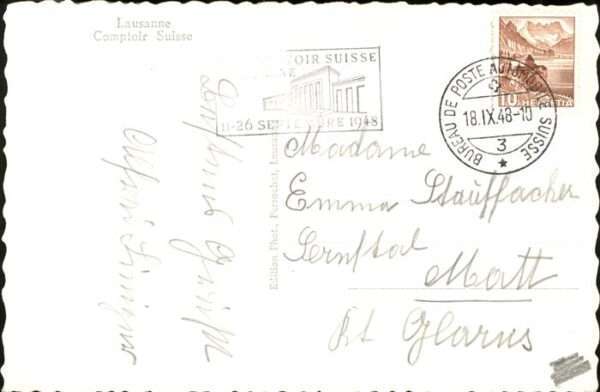 Lausanne
Comptoir Suisse
COMPTOIR SUISSE
11-26 SEPTEMBRE 1948
BUREAU DE POSTE AUTOMOBILE SUISSE
18.IX.48-10
3
10 HELVETIA
Madame
Emma Stauffacher
Sernftal
Matt
Kt Glarus
Edition Phot. Perrochet, Lausanne